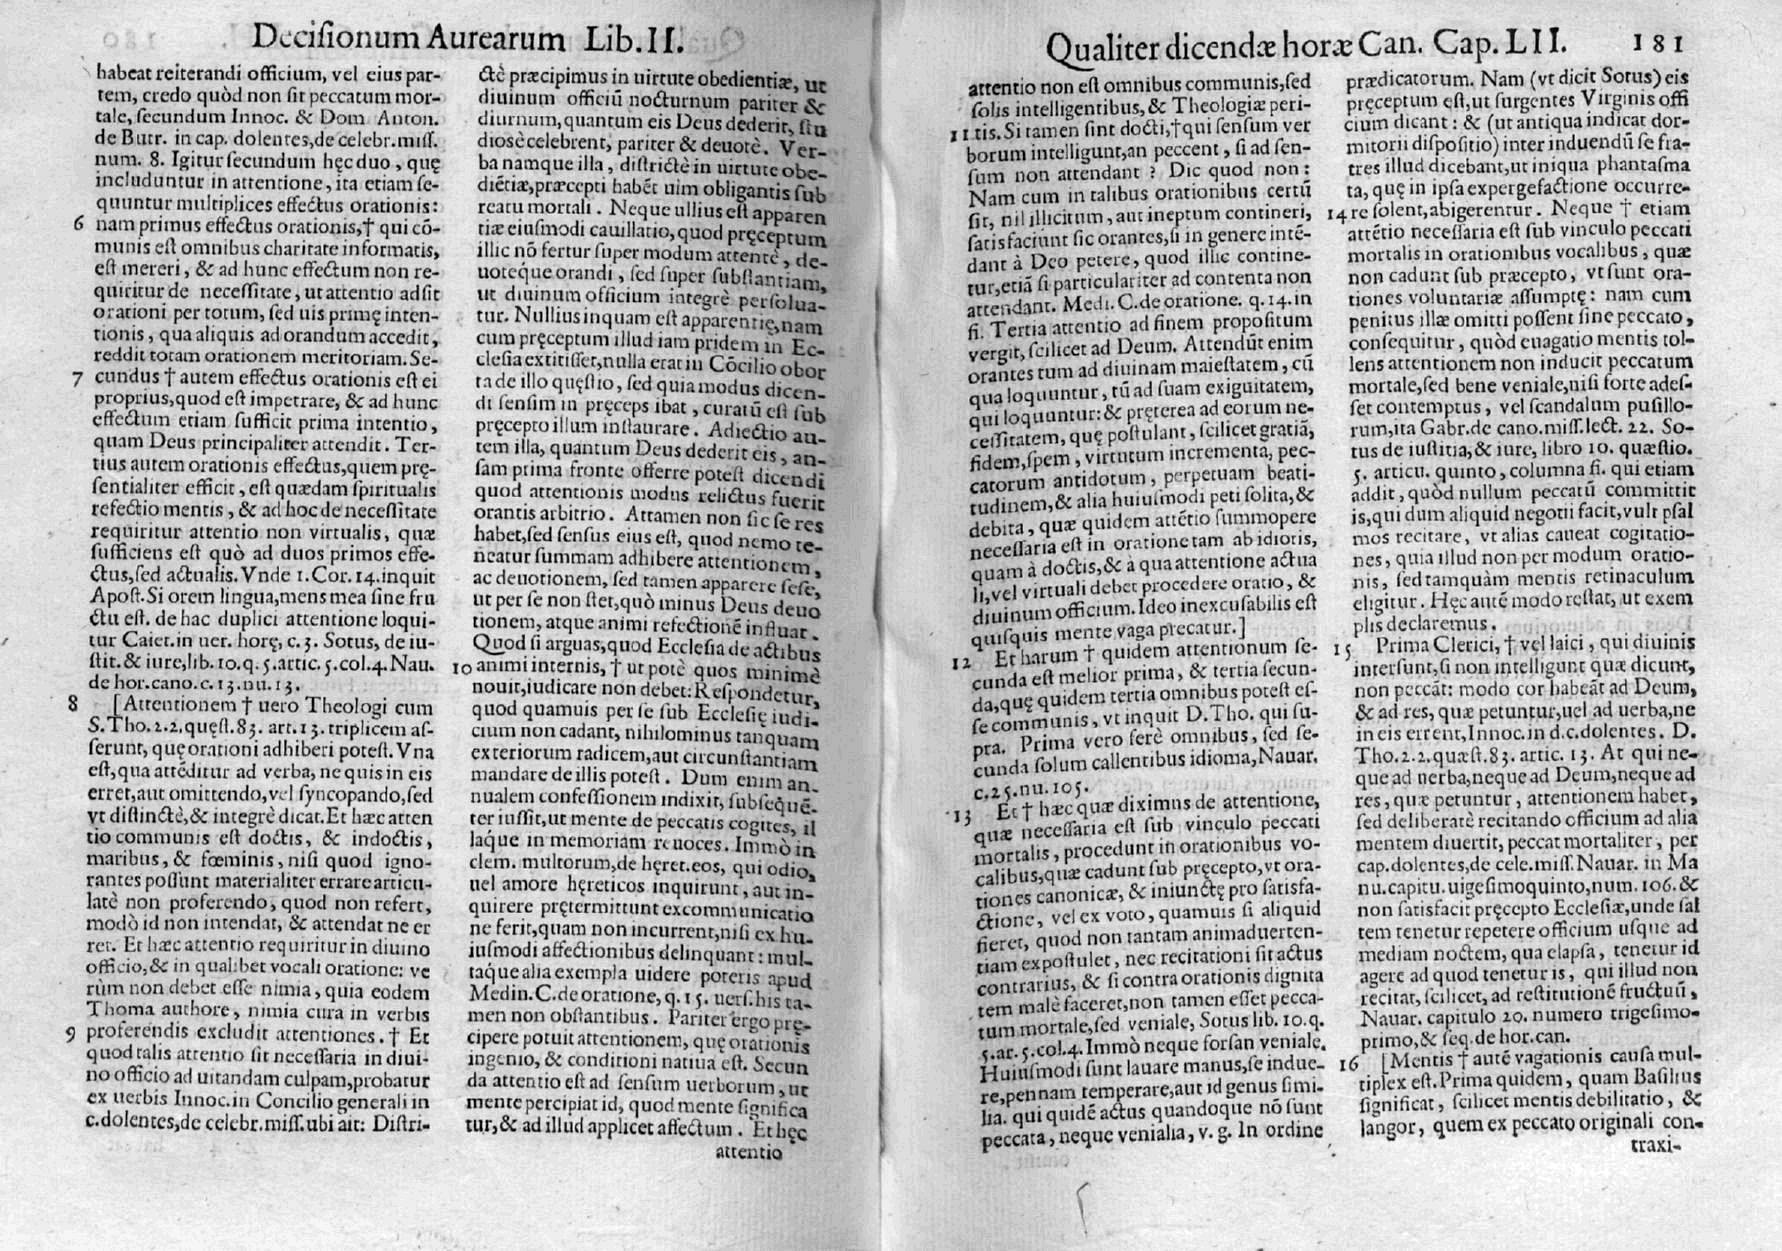 Deciſionum Aurearum Lib. II.
habeat reiterandi officium, vel eius par-
tem, credo quòd non ſit peccatum mor-
tale, ſecundum Innoc. & Dom Anton.
de Butr. in cap. dolentes, de celebr. miſſ.
num. 8. Igitur ſecundum hęc duo, quę
includuntur in attentione, ita etiam ſe-
quuntur multiplices effectus orationis:
6 nam primus effectus orationis, † qui cō-
munis eſt omnibus charitate informatis,
eſt mereri, & ad hunc effectum non re-
quiritur de neceſſitate, ut attentio adſit
orationi per totum, ſed uis primę inten-
tionis, qua aliquis ad orandum accedit,
reddit totam orationem meritoriam. Se-
7 cundus † autem effectus orationis eſt ei
proprius, quod eſt impetrare, & ad hunc
effectum etiam ſufficit prima intentio,
quam Deus principaliter attendit. Ter-
tius autem orationis effectus, quem prę-
ſentialiter efficit, eſt quædam ſpiritualis
refectio mentis, & ad hoc de neceſſitate
requiritur attentio non virtualis, quæ
ſufficiens eſt quò ad duos primos effe-
ctus, ſed actualis. Vnde 1. Cor. 14. inquit
Apoſt. Si orem lingua, mens mea ſine fru
ctu eſt. de hac duplici attentione loqui-
tur Caiet. in uer. horę, c. 3. Sotus, de iu-
ſtit. & iure, lib. 10. q. 5. artic. 5. col. 4. Nau.
de hor. cano. c. 13. nu. 13.
8 [Attentionem † uero Theologi cum
S. Tho. 2. 2. quęſt. 83. art. 13. triplicem aſ-
ſerunt, quę orationi adhiberi poteſt. Vna
eſt, qua attēditur ad verba, ne quis in eis
erret, aut omittendo, vel ſyncopando, ſed
vt diſtinctè, & integrè dicat. Et hæc atten
tio communis eſt doctis, & indoctis,
maribus, & fœminis, niſi quod igno-
rantes poſſunt materialiter errare articu-
latè non proferendo, quod non refert,
modò id non intendat, & attendat ne er
ret. Et hæc attentio requiritur in diuino
officio, & in qualibet vocali oratione: ve
rùm non debet eſſe nimia, quia eodem
Thoma authore, nimia cura in verbis
9 proferendis excludit attentiones. † Et
quod talis attentio ſit neceſſaria in diui-
no officio ad uitandam culpam, probatur
ex uerbis Innoc. in Concilio generali in
c. dolentes, de celebr. miſſ. ubi ait: Diſtri-
ctè præcipimus in uirtute obedientiæ, ut
diuinum officiū nocturnum pariter &
diurnum, quantum eis Deus dederit, ſtu
dioſè celebrent, pariter & deuotè. Ver-
ba namque illa, diſtrictè in uirtute obe-
diētiæ, præcepti habēt uim obligantis ſub
reatu mortali. Neque ullius eſt apparen
tiæ eiuſmodi cauillatio, quod pręceptum
illic nō fertur ſuper modum attentè, de-
uotéque orandi, ſed ſuper ſubſtantiam,
ut diuinum officium integrè perſolua-
tur. Nullius inquam eſt apparentię, nam
cum pręceptum illud iam pridem in Ec-
cleſia extitiſſet, nulla erat in Cōcilio obor
ta de illo quęſtio, ſed quia modus dicen-
di ſenſim in pręceps ibat, curatū eſt ſub
pręcepto illum inſtaurare. Adiectio au-
tem illa, quantum Deus dederit eis, an-
ſam prima fronte offerre poteſt dicendi
quod attentionis modus relictus fuerit
orantis arbitrio. Attamen non ſic ſe res
habet, ſed ſenſus eius eſt, quod nemo te-
neatur ſummam adhibere attentionem,
ac deuotionem, ſed tamen apparere ſeſe,
ut per ſe non ſtet, quò minus Deus deuo
tionem, atque animi refectionē influat.
Quod ſi arguas, quod Eccleſia de actibus
10 animi internis, † ut potè quos minimè
nouit, iudicare non debet: Reſpondetur,
quod quamuis per ſe ſub Eccleſię iudi-
cium non cadant, nihilominus tanquam
exteriorum radicem, aut circunſtantiam
mandare de illis poteſt. Dum enim an-
nualem confeſſionem indixit, ſubſequē-
ter iuſſit, ut mente de peccatis cogites, il
láque in memoriam reuoces. Immò in
clem. multorum, de hęret. eos, qui odio,
uel amore hęreticos inquirunt, aut in-
quirere prętermittunt excommunicatio
ne ferit, quam non incurrent, niſi ex hu-
iuſmodi affectionibus delinquant: mul-
taque alia exempla uidere poteris apud
Medin. C. de oratione, q. 15. uerſ. his ta-
men non obſtantibus. Pariter ergo prę-
cipere potuit attentionem, quę orationis
ingenio, & conditioni natiua eſt. Secun
da attentio eſt ad ſenſum uerborum, ut
mente percipiat id, quod mente ſignifica
tur, & ad illud applicet affectum. Et hęc
attentio
Qualiter dicendæ horæ Can. Cap. LII. 181
attentio non eſt omnibus communis, ſed
ſolis intelligentibus, & Theologiæ peri-
11 tis. Si tamen ſint docti, † qui ſenſum ver
borum intelligunt, an peccent, ſi ad ſen-
ſum non attendant? Dic quod non:
Nam cum in talibus orationibus certū
ſit, nil illicitum, aut ineptum contineri,
ſatisfaciunt ſic orantes, ſi in genere intē-
dant à Deo petere, quod illic contine-
tur, etiā ſi particulariter ad contenta non
attendant. Medi. C. de oratione. q. 14. in
fi. Tertia attentio ad finem propoſitum
vergit, ſcilicet ad Deum. Attendūt enim
orantes tum ad diuinam maieſtatem, cū
qua loquuntur, tū ad ſuam exiguitatem,
qui loquuntur: & pręterea ad eorum ne-
ceſſitatem, quę poſtulant, ſcilicet gratiā,
fidem, ſpem, virtutum incrementa, pec-
catorum antidotum, perpetuam beati-
tudinem, & alia huiuſmodi peti ſolita, &
debita, quæ quidem attētio ſummopere
neceſſaria eſt in oratione tam ab idiotis,
quam à doctis, & à qua attentione actua
li, vel virtuali debet procedere oratio, &
diuinum officium. Ideo inexcuſabilis eſt
quiſquis mente vaga precatur.]
12 Et harum † quidem attentionum ſe-
cunda eſt melior prima, & tertia ſecun-
da, quę quidem tertia omnibus poteſt eſ-
ſe communis, vt inquit D. Tho. qui ſu-
pra. Prima vero ferè omnibus, ſed ſe-
cunda ſolum callentibus idioma, Nauar.
c. 25. nu. 105.
13 Et † hæc quæ diximus de attentione,
quæ neceſſaria eſt ſub vinculo peccati
mortalis, procedunt in orationibus vo-
calibus, quæ cadunt ſub pręcepto, vt ora-
tiones canonicæ, & iniunctę pro ſatisfa-
ctione, vel ex voto, quamuis ſi aliquid
fieret, quod non tantam animaduerten-
tiam expoſtulet, nec recitationi ſit actus
contrarius, & ſi contra orationis dignita
tem malè faceret, non tamen eſſet pecca-
tum mortale, ſed veniale, Sotus lib. 10. q.
5. ar. 5. col. 4. Immò neque forſan veniale.
Huiuſmodi ſunt lauare manus, ſe indue-
re, pennam temperare, aut id genus ſimi-
lia. qui quidē actus quandoque nō ſunt
peccata, neque venialia, v. g. In ordine
prædicatorum. Nam (vt dicit Sotus) eis
pręceptum eſt, ut ſurgentes Virginis offi
cium dicant: & (ut antiqua indicat dor-
mitorii diſpoſitio) inter induendū ſe fra-
tres illud dicebant, ut iniqua phantaſma
ta, quę in ipſa expergefactione occurre-
14 re ſolent, abigerentur. Neque † etiam
attētio neceſſaria eſt ſub vinculo peccati
mortalis in orationibus vocalibus, quæ
non cadunt ſub præcepto, vt ſunt ora-
tiones voluntariæ aſſumptę: nam cum
penitus illæ omitti poſſent ſine peccato,
conſequitur, quòd euagatio mentis tol-
lens attentionem non inducit peccatum
mortale, ſed bene veniale, niſi forte adeſ-
ſet contemptus, vel ſcandalum puſillo-
rum, ita Gabr. de cano. miſſ. lect. 22. So-
tus de iuſtitia, & iure, libro 10. quæſtio.
5. articu. quinto, columna fi. qui etiam
addit, quòd nullum peccatū committit
is, qui dum aliquid negotii facit, vult pſal
mos recitare, vt alias caueat cogitatio-
nes, quia illud non per modum oratio-
nis, ſed tamquàm mentis retinaculum
eligitur. Hęc autē modo reſtat, ut exem
plis declaremus.
15 Prima Clerici, † vel laici, qui diuinis
interſunt, ſi non intelligunt quæ dicunt,
non peccāt: modo cor habeāt ad Deum,
& ad res, quæ petuntur, uel ad uerba, ne
in eis errent, Innoc. in d. c. dolentes. D.
Tho. 2. 2. quæſt. 83. artic. 13. At qui ne-
que ad uerba, neque ad Deum, neque ad
res, quæ petuntur, attentionem habet,
ſed deliberatè recitando officium ad alia
mentem diuertit, peccat mortaliter, per
cap. dolentes, de cele. miſſ. Nauar. in Ma
nu. capitu. uigeſimoquinto, num. 106. &
non ſatisfacit pręcepto Eccleſiæ, unde ſal
tem tenetur repetere officium uſque ad
mediam noctem, qua elapſa, tenetur id
agere ad quod tenetur is, qui illud non
recitat, ſcilicet, ad reſtitutionē fructuū,
Nauar. capitulo 20. numero trigeſimo-
primo, & ſeq. de hor. can.
16 [Mentis † autē vagationis cauſa mul-
tiplex eſt. Prima quidem, quam Baſilius
ſignificat, ſcilicet mentis debilitatio, &
langor, quem ex peccato originali con-
traxi-